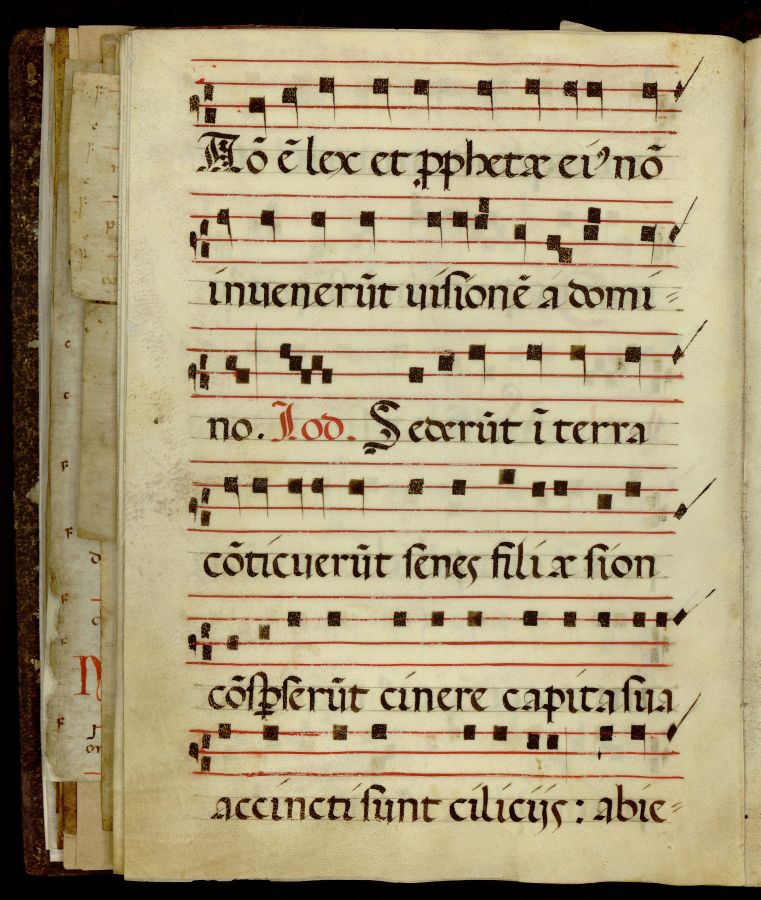 Nõ ẽ lex et ꝓphetæ eiꝰ nõ
inuenerũt uisionẽ a domi=
no. Iod. Sederũt ĩ terra
cõticuerũt senes filiæ sion
cõsꝑserũt cinere capita sua
accincti sunt cilicijs : abie=